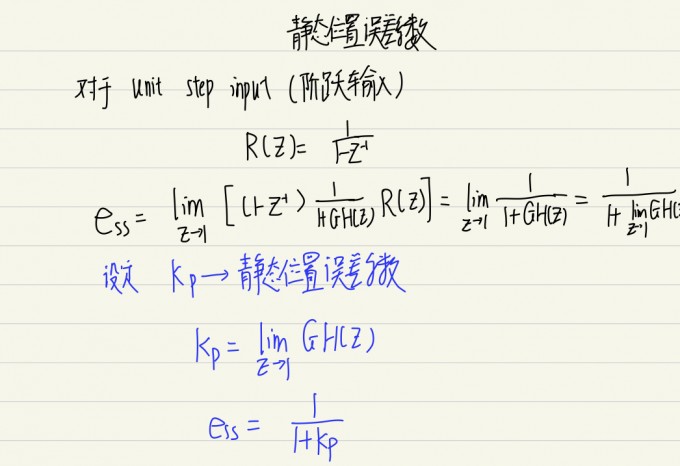 静态位置误差系数
对于 unit step input (阶跃输入)
R(Z)= 1/(1-Z⁻¹)
e_ss = lim_{Z→1} [ (1-Z⁻¹) 1/(1+GH(Z)) R(Z) ] = lim_{Z→1} 1/(1+GH(Z)) = 1/(1+ lim_{Z→1} GH(Z
设定 Kp → 静态位置误差系数
Kp = lim_{Z→1} GH(Z)
e_ss = 1/(1+Kp)